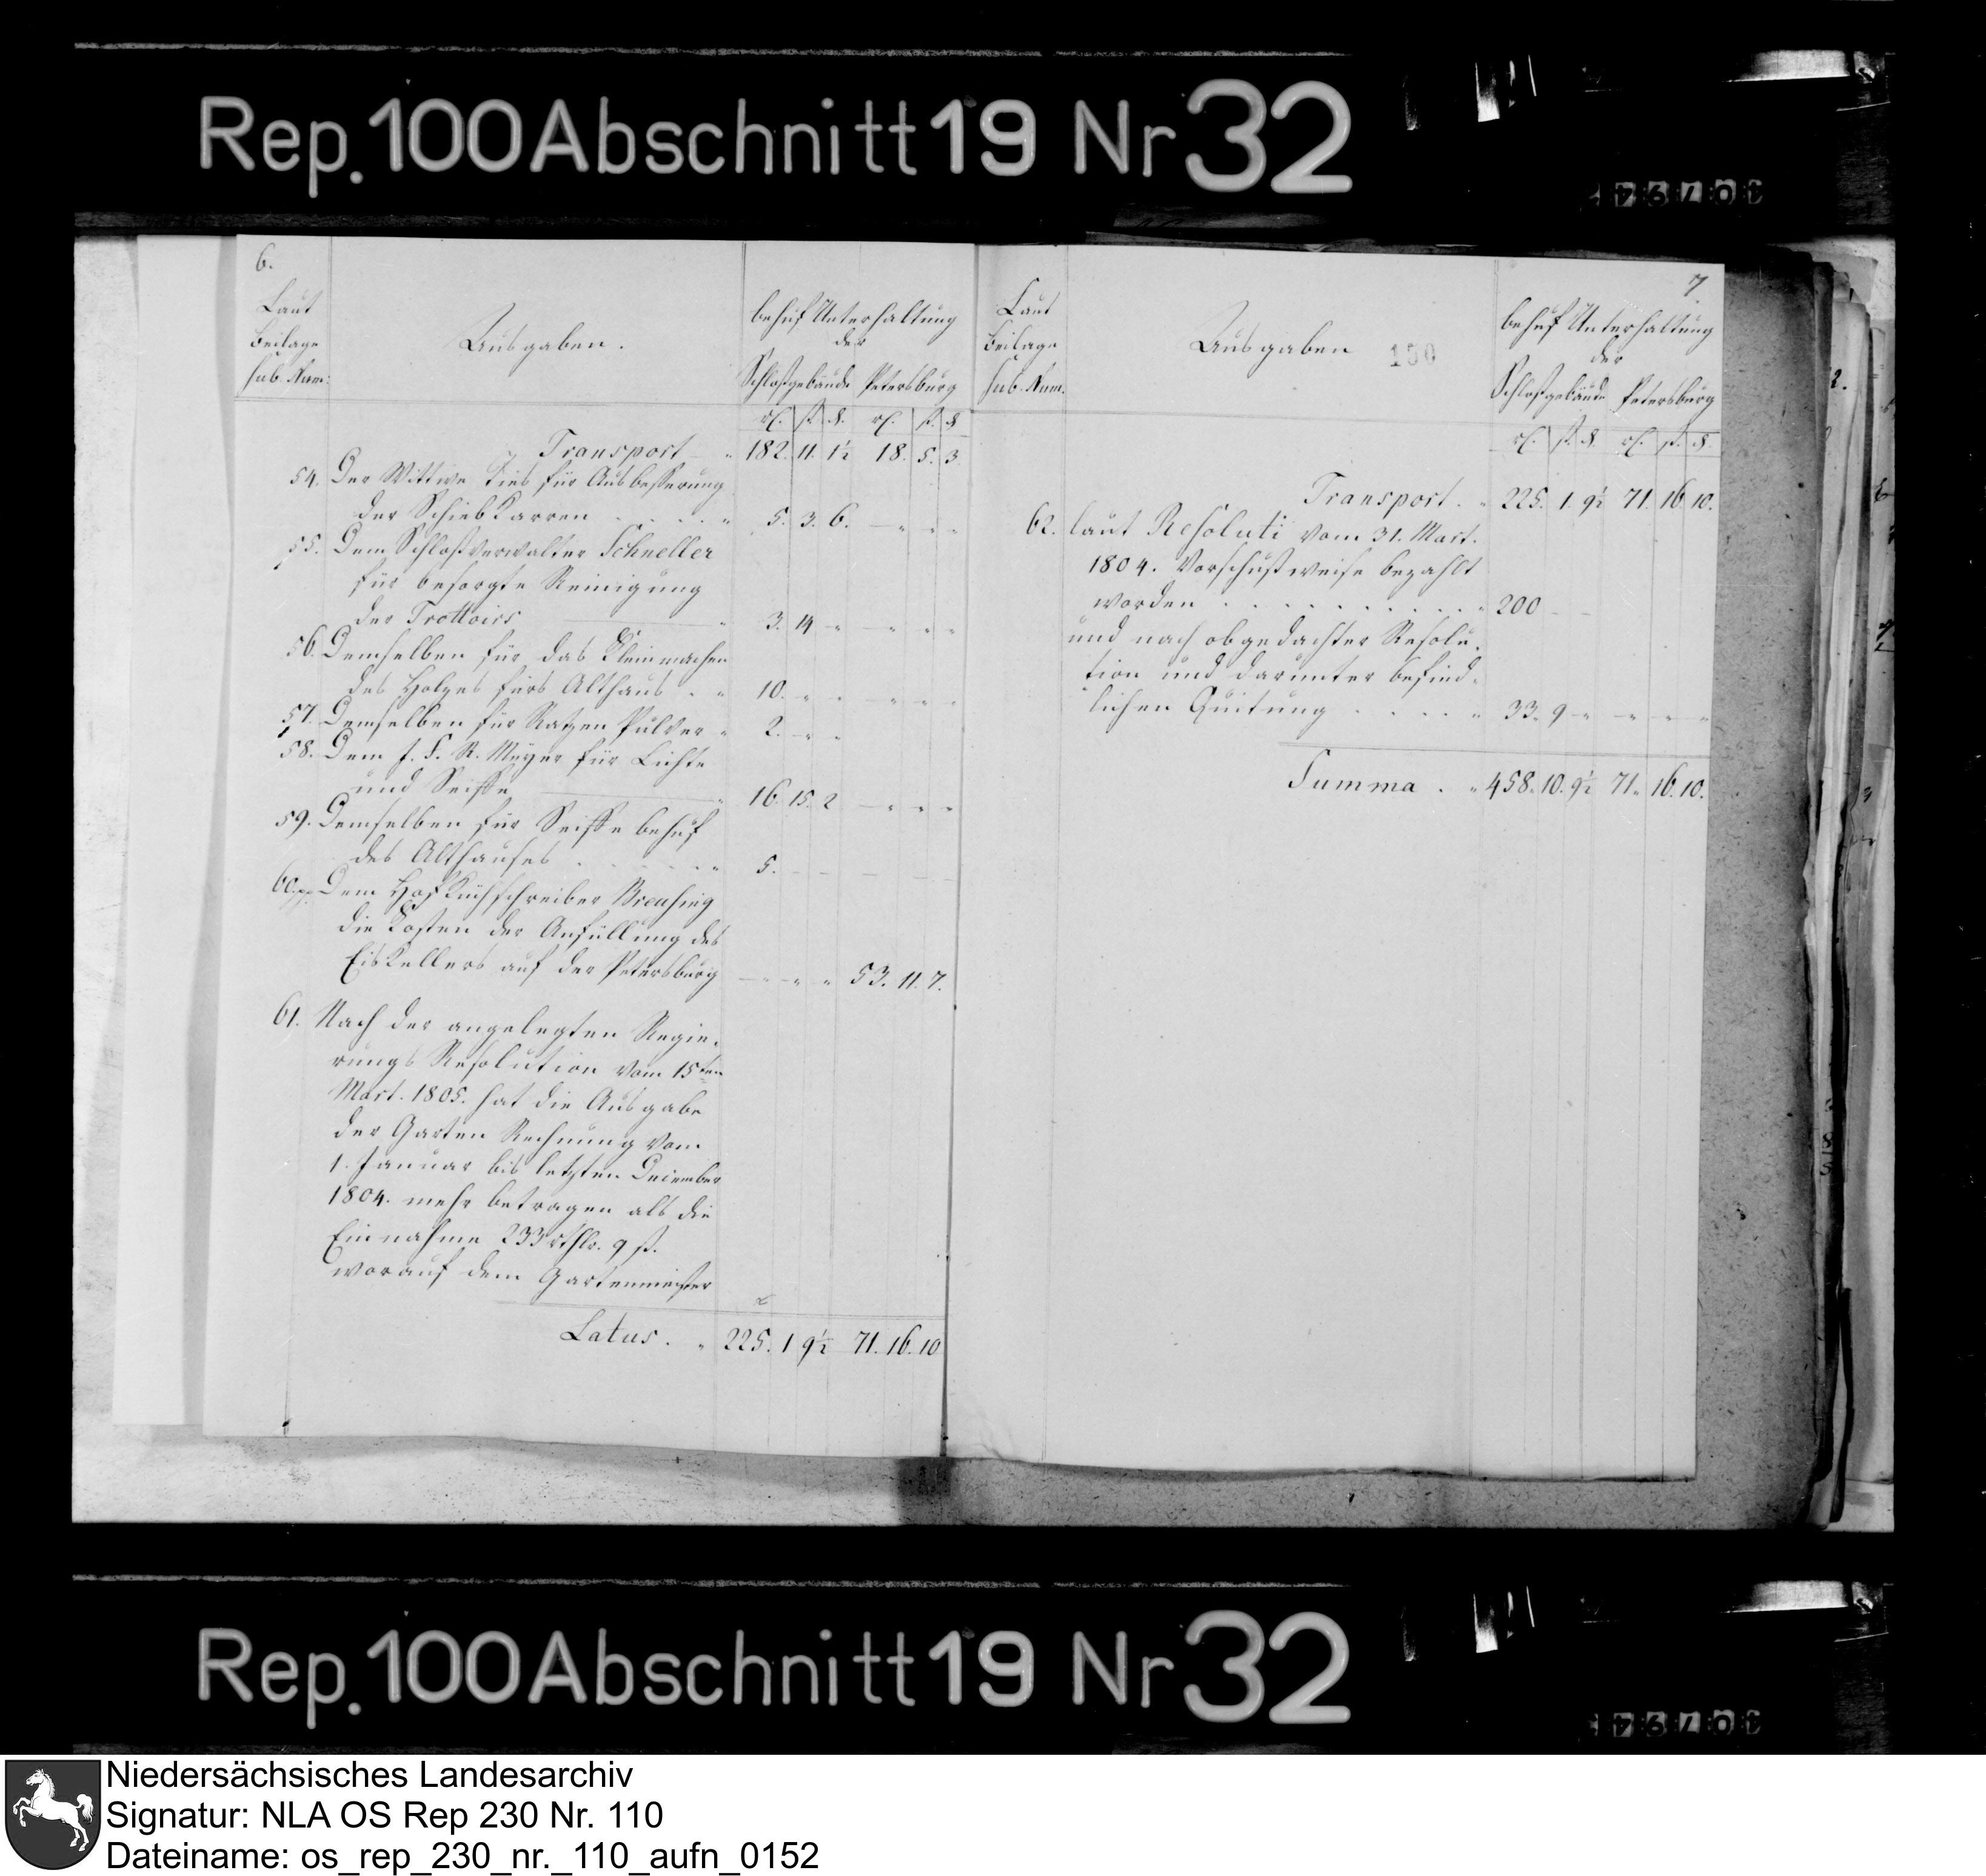 Rep. 100 Abschnitt 19 Nr 32
6.
Laut
Beilage
sub. Num:
Ausgaben.
behuf Unterhaltung
der
Schloßgebäude Petersburg
rl. ß. d. rl. ß. d.
Transport 182. 11. 1½ 18. 5. 3.
54. Der Wittwe Ties für Ausbesserung
der Schiebkarren 5. 3. 6.
55. Dem Schloßverwalter Schneller
für besorgte Reinigung
der Trottoirs 3. 14
56. Demselben für das Kleinmachen
des Holzes fürs Althaus 10.
57. Demselben für Ratzen Pulver 2.
58. Dem J. F. R. Meyer für Lichte
und Seiffe 16. 15. 2
59. Demselben für Seiffe behuf
des Althauses 5.
60. Dem Hof Küchschreiber Breusing
die Kosten der Anfüllung des
Eiskellers auf der Petersburg 53. 11. 7.
61. Nach der angelegten Regie-
rungs Resolution vom 15ten
Mart. 1805. hat die Ausgabe
der Garten Rechnung vom
1. Januar bis letzten December
1804. mehr betragen als die
Einnahme 233 rthlr. 9 ß.
worauf dem Gartenmeister
Latus. 225. 1 9½ 71. 16. 10
7
Laut
Beilage
sub. Num.
Ausgaben
150
behuf Unterhaltung
der
Schloßgebäude Petersburg
rl. ß. d. rl. ß. d.
Transport. 225. 1. 9½ 71. 16. 10.
62. laut Resoluti vom 31. Mart.
1804. Vorschußweise bezahlt
worden 200
und nach obgedachter Resolu-
tion und darunter befind-
lichen Quitung 33. 9
Summa. 458. 10. 9½ 71. 16. 10.
Rep. 100 Abschnitt 19 Nr 32
Niedersächsisches Landesarchiv
Signatur: NLA OS Rep 230 Nr. 110
Dateiname: os_rep_230_nr._110_aufn_0152